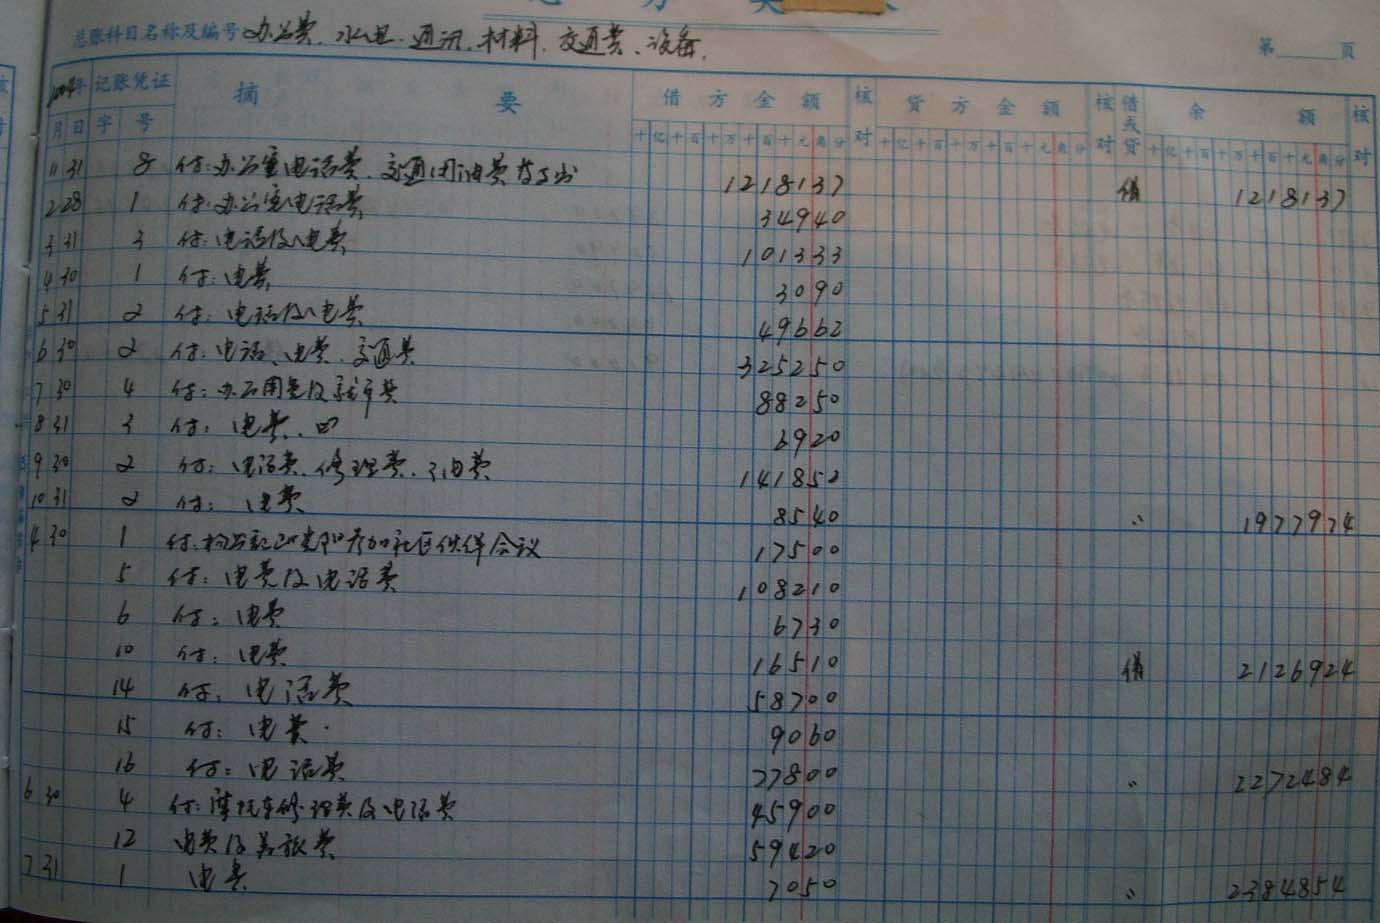 总账科目名称及编号 办公费、水电、通讯、材料、交通费、设备。
第 页
2004年 记账凭证 摘 要 借方金额 核对 贷方金额 核对 借或贷 余 额 核对
月 日 字 号 十亿千百十万千百十元角分 十亿千百十万千百十元角分 十亿千百十万千百十元角分
31 8 付:办公室电话费、交通用油费 1218137 借 1218137
2 28 1 付:办公室电话费 34940
3 31 3 付:电话及电费 101333
4 30 1 付:电费 3090
5 31 2 付:电话及电费 49662
6 30 2 付:电话、电费、交通费 325250
7 30 4 付:办公用 及 费 88250
8 31 3 付:电费 6920
9 30 2 付:电话费、修理费、油费 141852
10 31 2 付:电费 8540 〃 1977974
4 30 1 付: 参加社区伙伴会议 17500
5 付:电费及电话费 108210
6 付:电费 6730
10 付:电费 16510 借 2126924
14 付:电话费 58700
15 付:电费 9060
16 付:电话费 77800 〃 2272484
6 30 4 付:摩托车修理费及电话费 45900
12 电费及差旅费 59420
7 31 1 电费 7050 〃 2384854